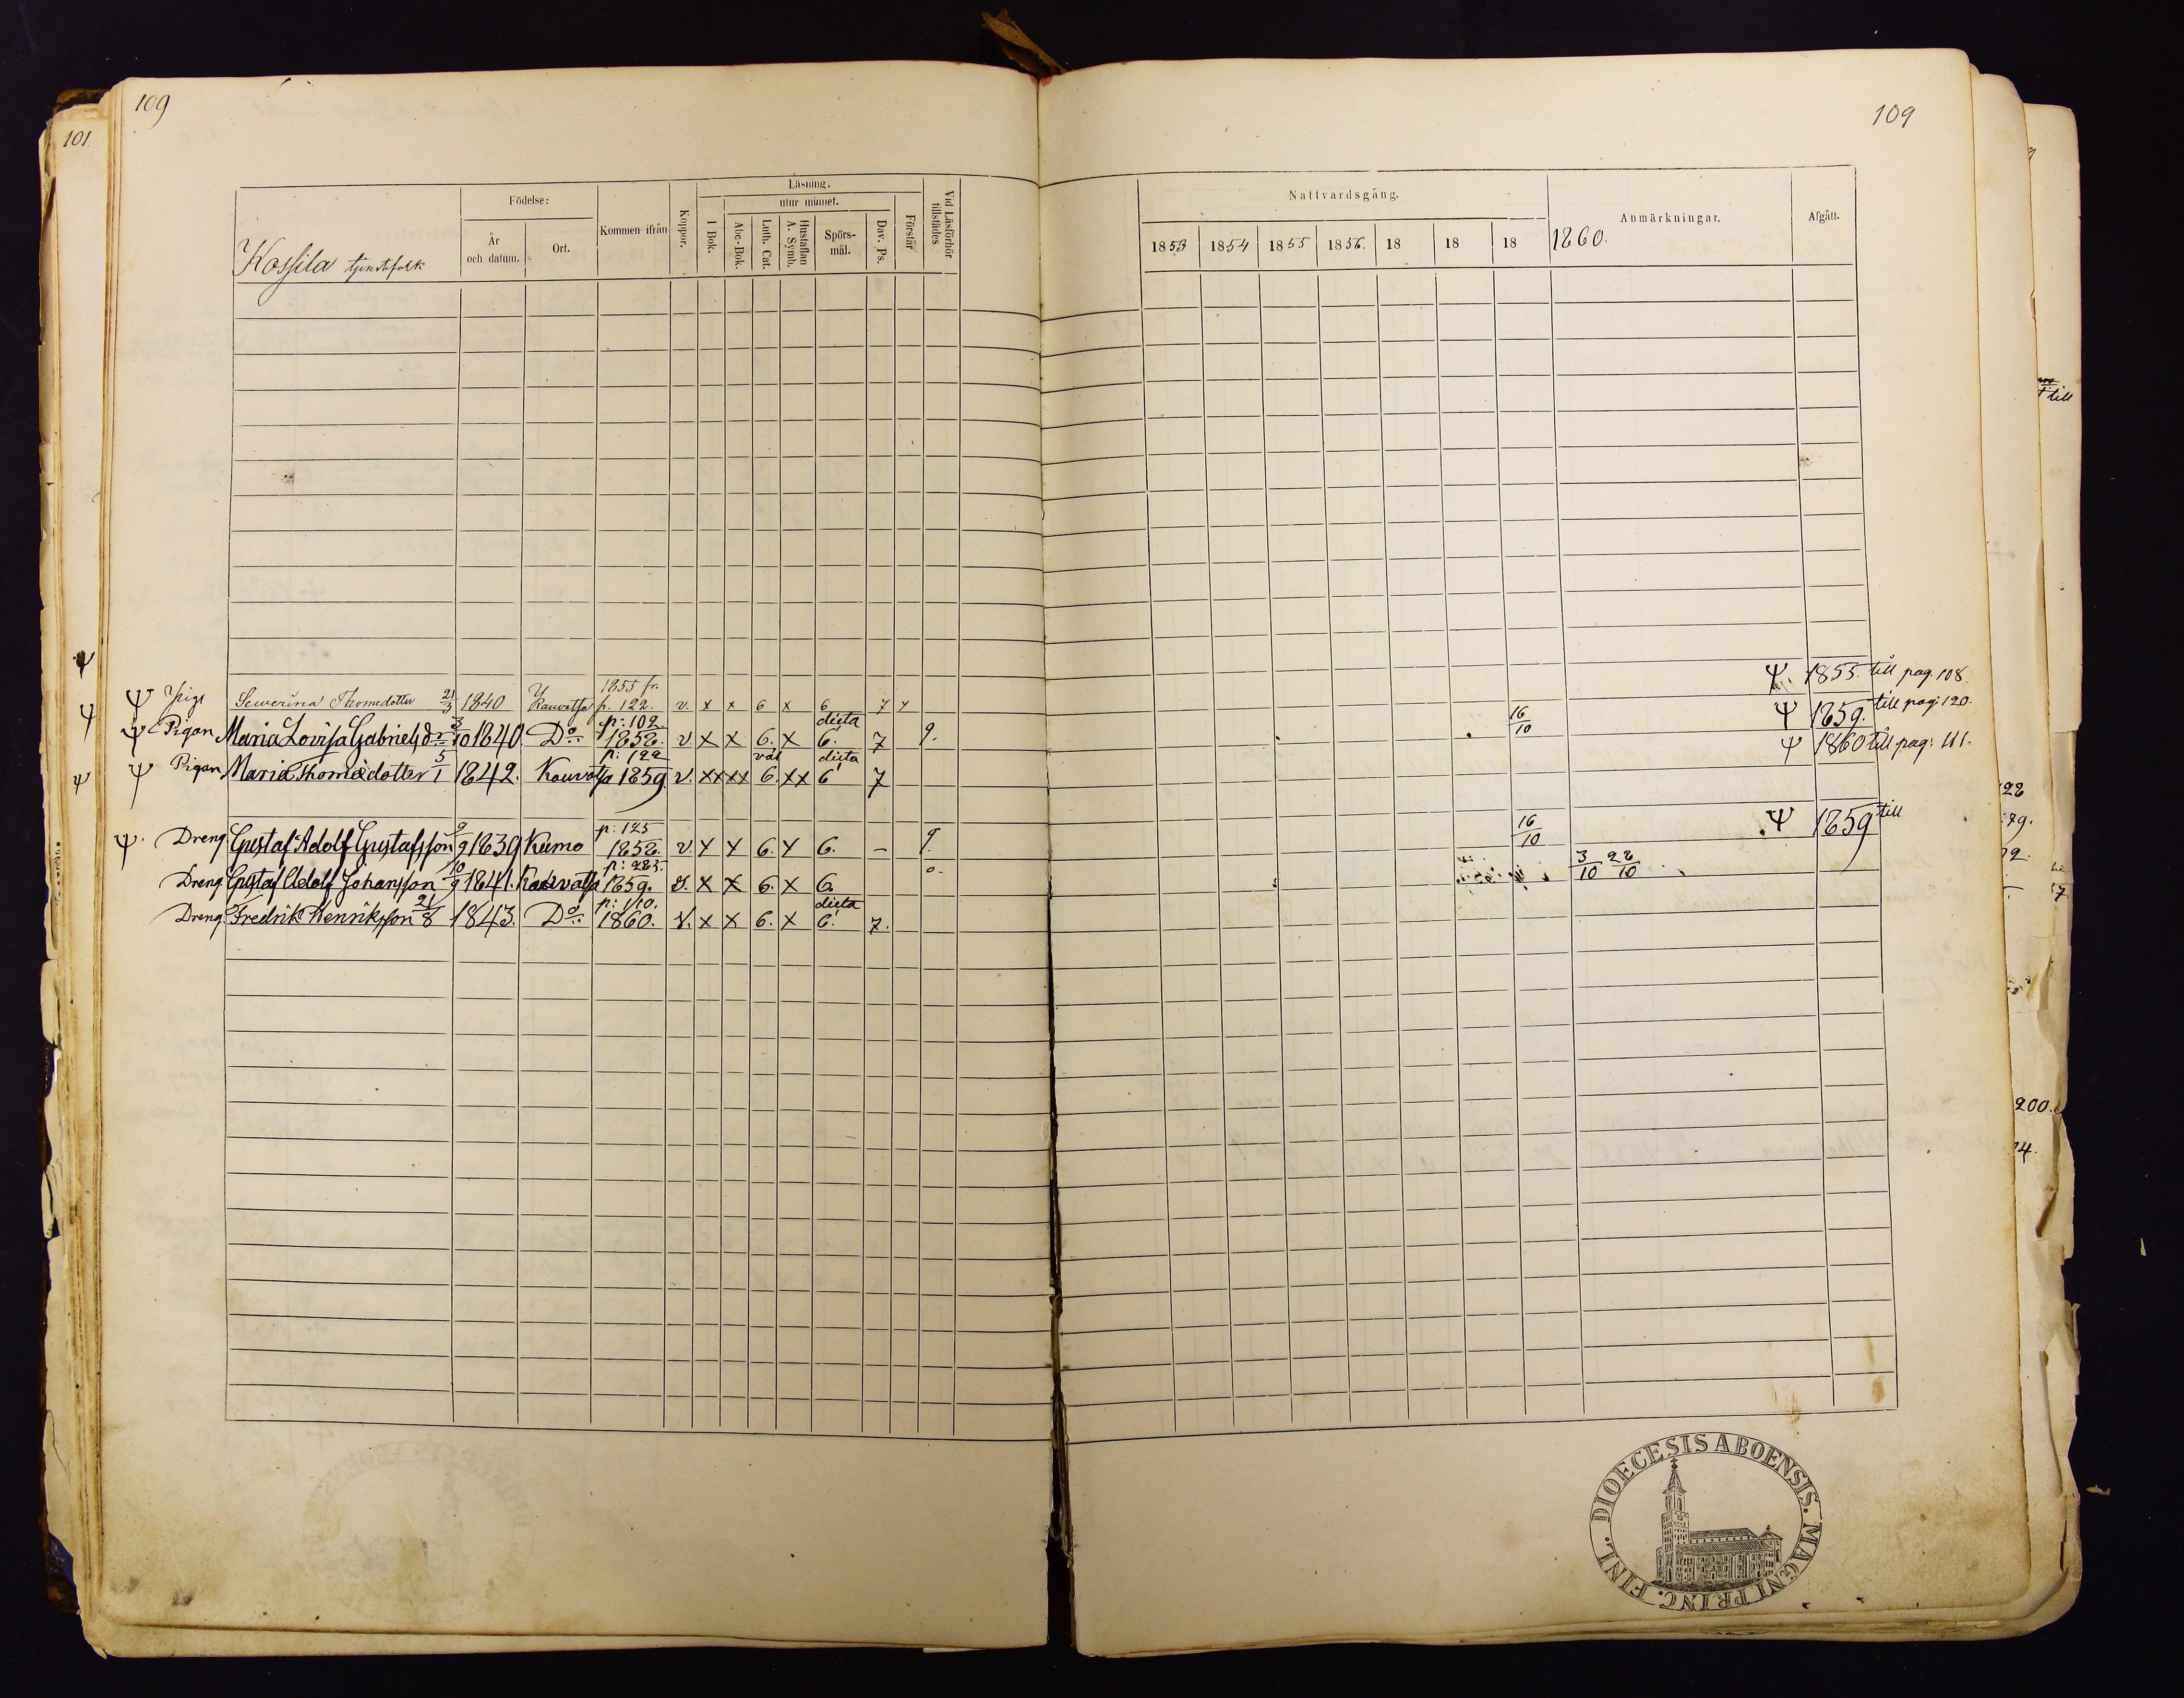 109
101.
Kossila tjenstefolk
Födelse:
År och datum.
Ort.
Kommen ifrån
Koppor.
Läsning.
I Bok.
utur minnet.
Abc-Bok.
Luth. Cat.
Hustaflan A. Symb.
Spörs-mål.
Dav. Ps.
Förstår
Vid Läsförhör tillstädes
Ψ Pige Sewerina Thomedotter 21/3 1840 Kauvatsa 1855 fr. p. 122. v. x x 6 x 6 7 x
Ψ Pigan Maria Lovisa Gabrielsdr 3/10 1840. Do p: 102 1858. v x x 6. x dicta 6. 7 9.
Ψ Pigan Maria Thomædotter 5/1 1842. Kauvatsa p: 122 1859. v. xx xx väl 6. xx dicta 6 7
Ψ. Dreng Gustaf Adolf Gustafsson 9/9 1839 Kumo p: 125 1858. v x x 6. x 6. – 9.
Dreng Gustaf Adolf Johansson 10/9 1841. Kauvatsa p: 283. 1859. v. x x 6. x 6. 0.
Dreng Fredrik Henriksson 21/8 1843. Do p: 110. 1860. v. x x 6. x dicta 6. 7.
109
Nattvardsgång.
1853 1854 1855 1856. 18 18 18
Anmärkningar.
1860.
Afgått.
Ψ. 1855. till pag. 108.
16/10 Ψ 1859. till pag: 120.
Ψ 1860 till pag: 111.
16/10 Ψ 1859 till
3/10 28/10
till
200.
DIOECESIS ABOENSIS. MAGNI PRINC. FINL.